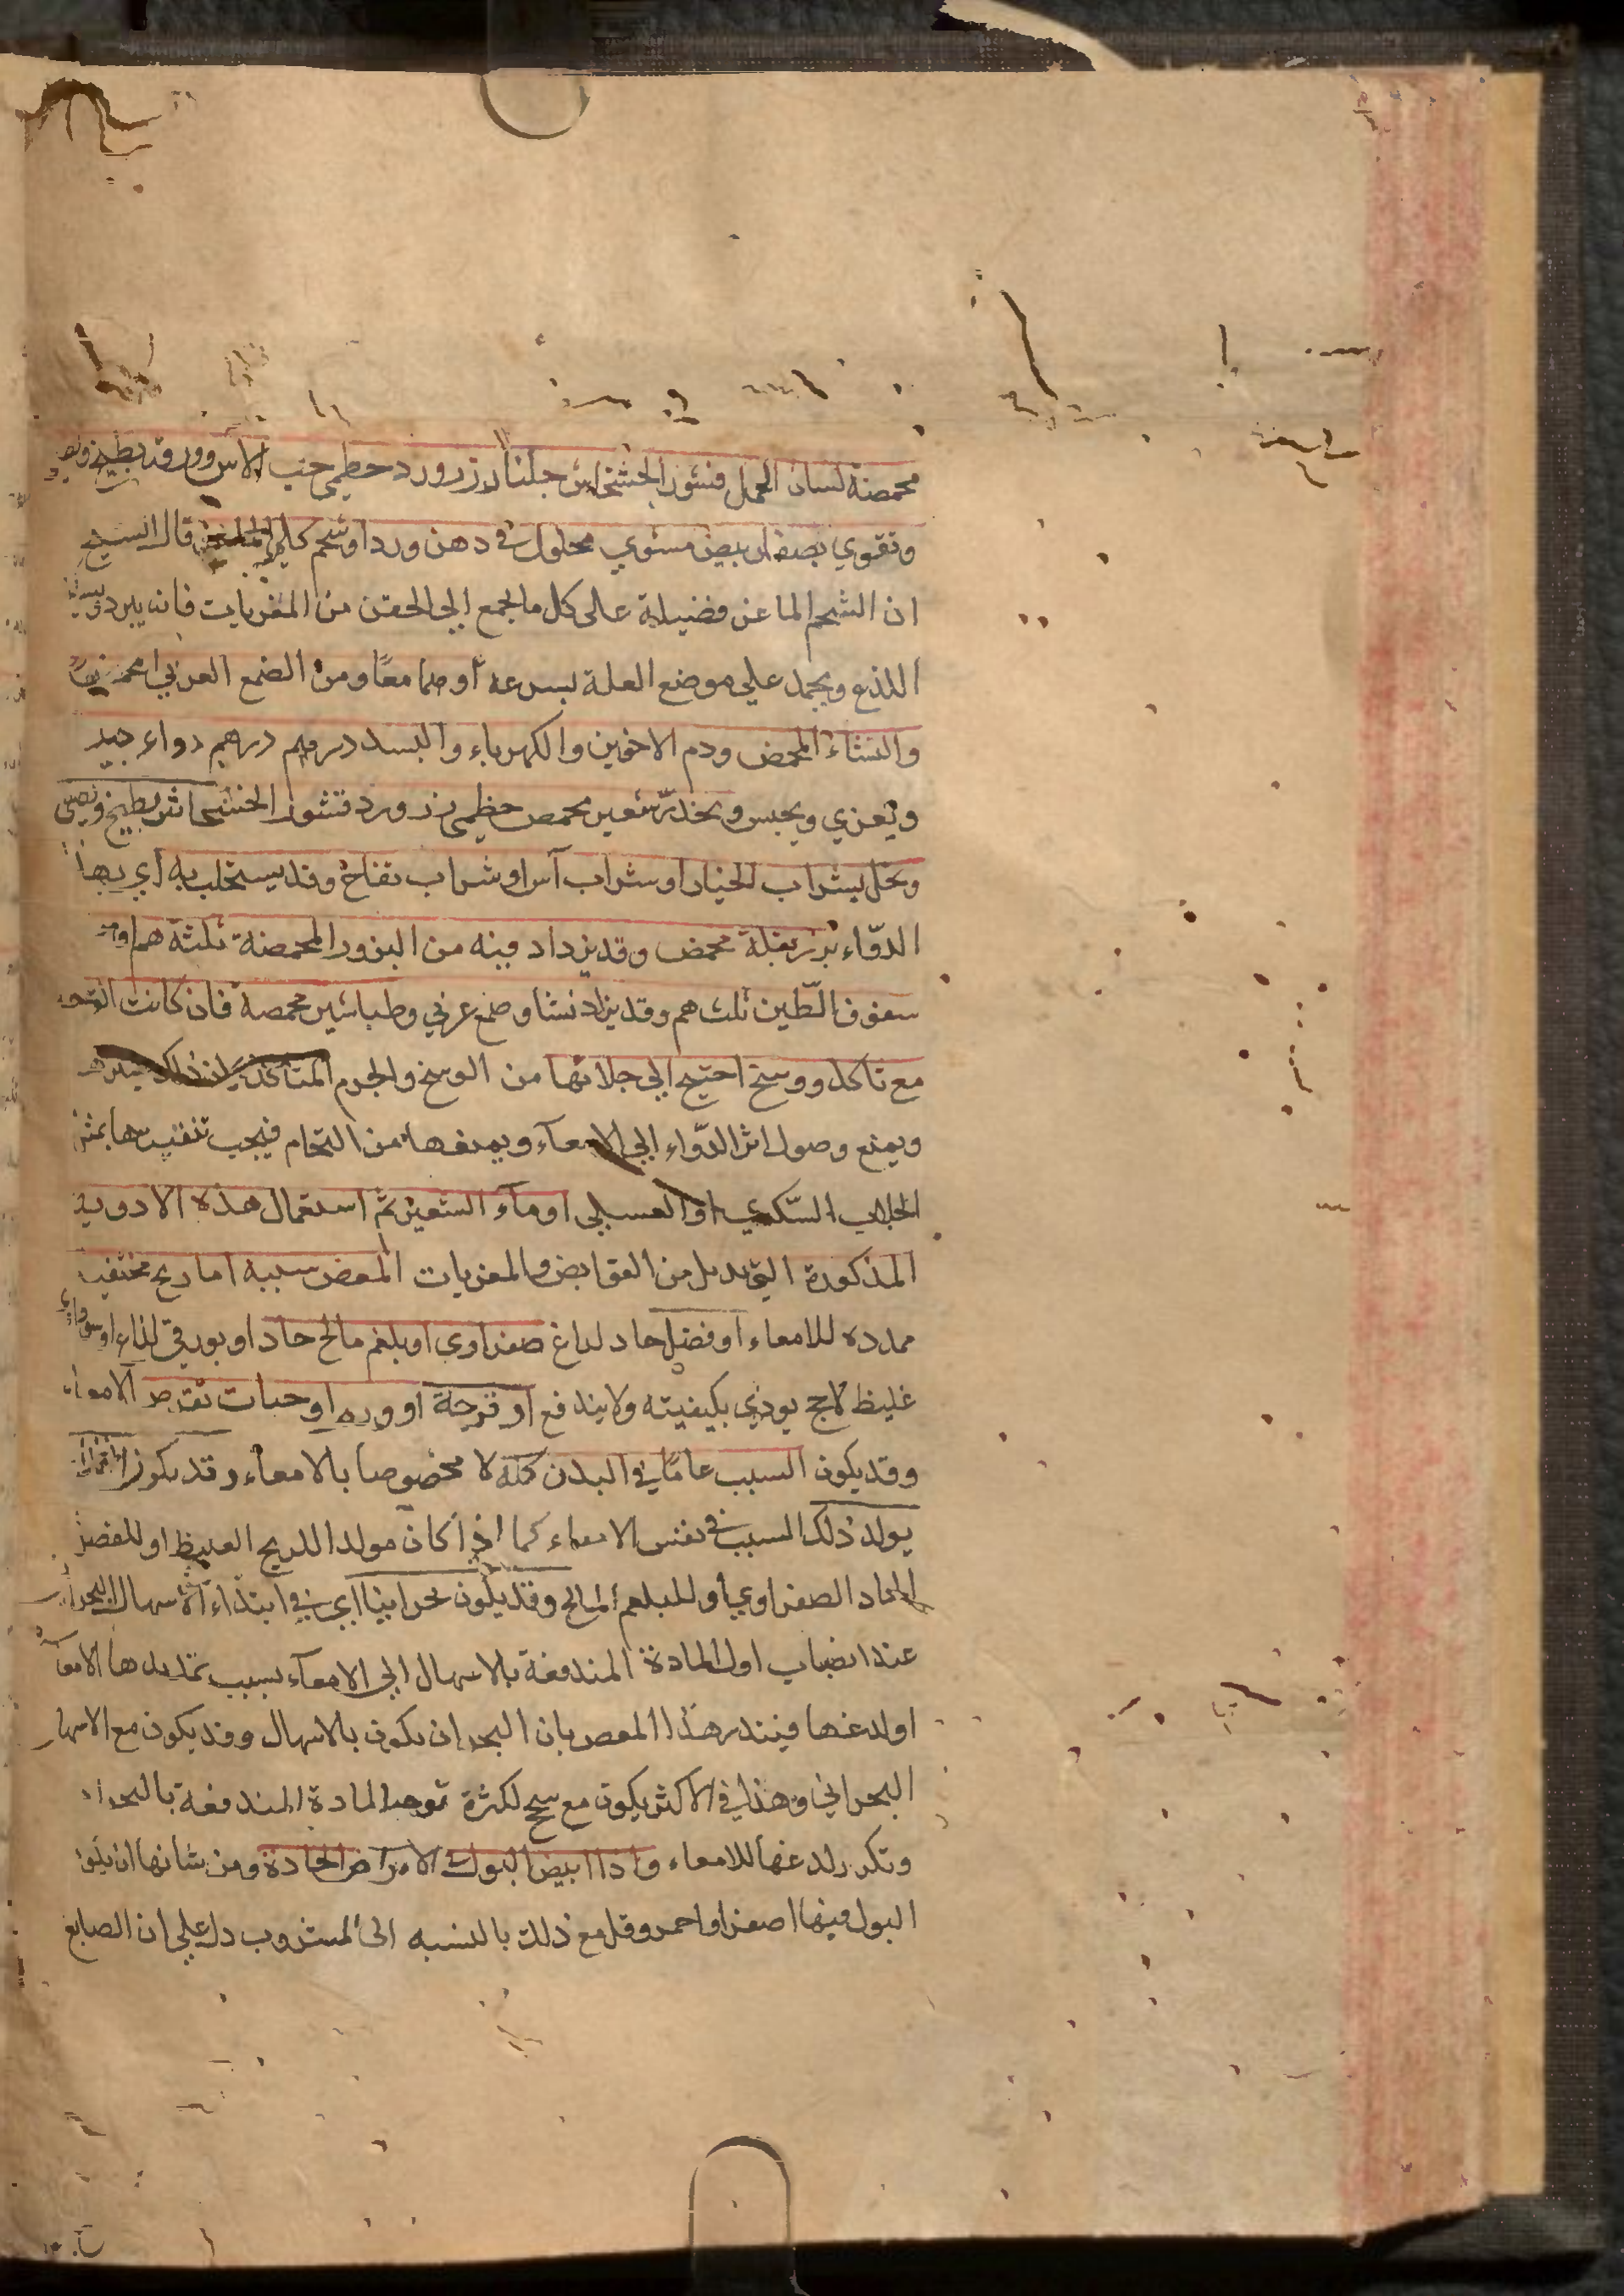 محمصة لسان الحمل قشور الخشخاش جلنار زرورد خطمى حب الاس وورقه يطبخ ويصفى
وتقوي بصفار بيض مشوي محلول في دهن ورد او شحم كلى الماعز قال الشيخ
ان الشحم الماعز فضيلة على كل ما يجمع الي الحقن من المغريات فانه يبرد
اللذع ويجمد علي موضع العلة بسرعة او هما معًا ومن الصمغ العربي
والنشاء المحمص ودم الاخوين والكهرباء والبسد درهم درهم دواء جيد
ويغري ويحبس ويخدر شعير محمص خطمى زرورد قشور الخشخاش يطبخ ويصفى
ويحلى بشراب الخيار او شراب آس او شراب تفاح وقد يستحلب به اي بهذا
الدّواء بزر بقلة محمص وقد يزداد فيه من البزور المحمصة ثلثة هم ومن
سفوف الطّين ثلث هم وقد يزاد نشا وصمغ عربي وطباشير محمصة فان كانت القرحة
مع تاكل ووسخ احتيج الي جلائها من الوسخ والجرم المتاكل لان ذلك
ويمنع وصول اثر الدّواء الي الامعآء ويمنعها من التحام فيجب تنقيتها بمثل
الجلاب السّكري او العسلي او مآء الشعير ثم استعمال هذه الادوية
المذكورة التي تدمل من القوابض والمغريات المغص سببه اما ريح محتقنة
ممددة للامعاء او فضل حاد لداغ صفراوى او بلغم مالح حاد او بورقي لذاع او
غليظ لاحج يوذي بكيفيته ولا يندفع او قرحة او ورم او حيات الامعاء
وقد يكون السبب عامًا في البدن كله لا مخصوصا بالامعاء وقد يكون
يولد ذلك السبب في نفس الامعاء كما اذا كان مولدا للريح الغليظ او للفضل
الحاد الصفراوي او للبلغم المالح وقد يكون بحرانيًا اي في ابتداء الاسهال البحراني
عند انصباب اول المادة المندفعة بالاسهال الي الامعآء بسبب تمديدها الامعآء
او لدغها فينذر هذا المغص بان البحران يكون بالاسهال وقد يكون مع الاسهال
البحراني وهذا في الاكثر يكون مع سحج لكثرة توجه المادة المندفعة بالبحران
وتكرر لدغها للامعاء واذا ابيض البول في الامراض الحادة ومن شانها ان يكون
البول فيها اصفر او احمر وقل مع ذلك بالنسبه الى المشروب دل علي ان الصابغ